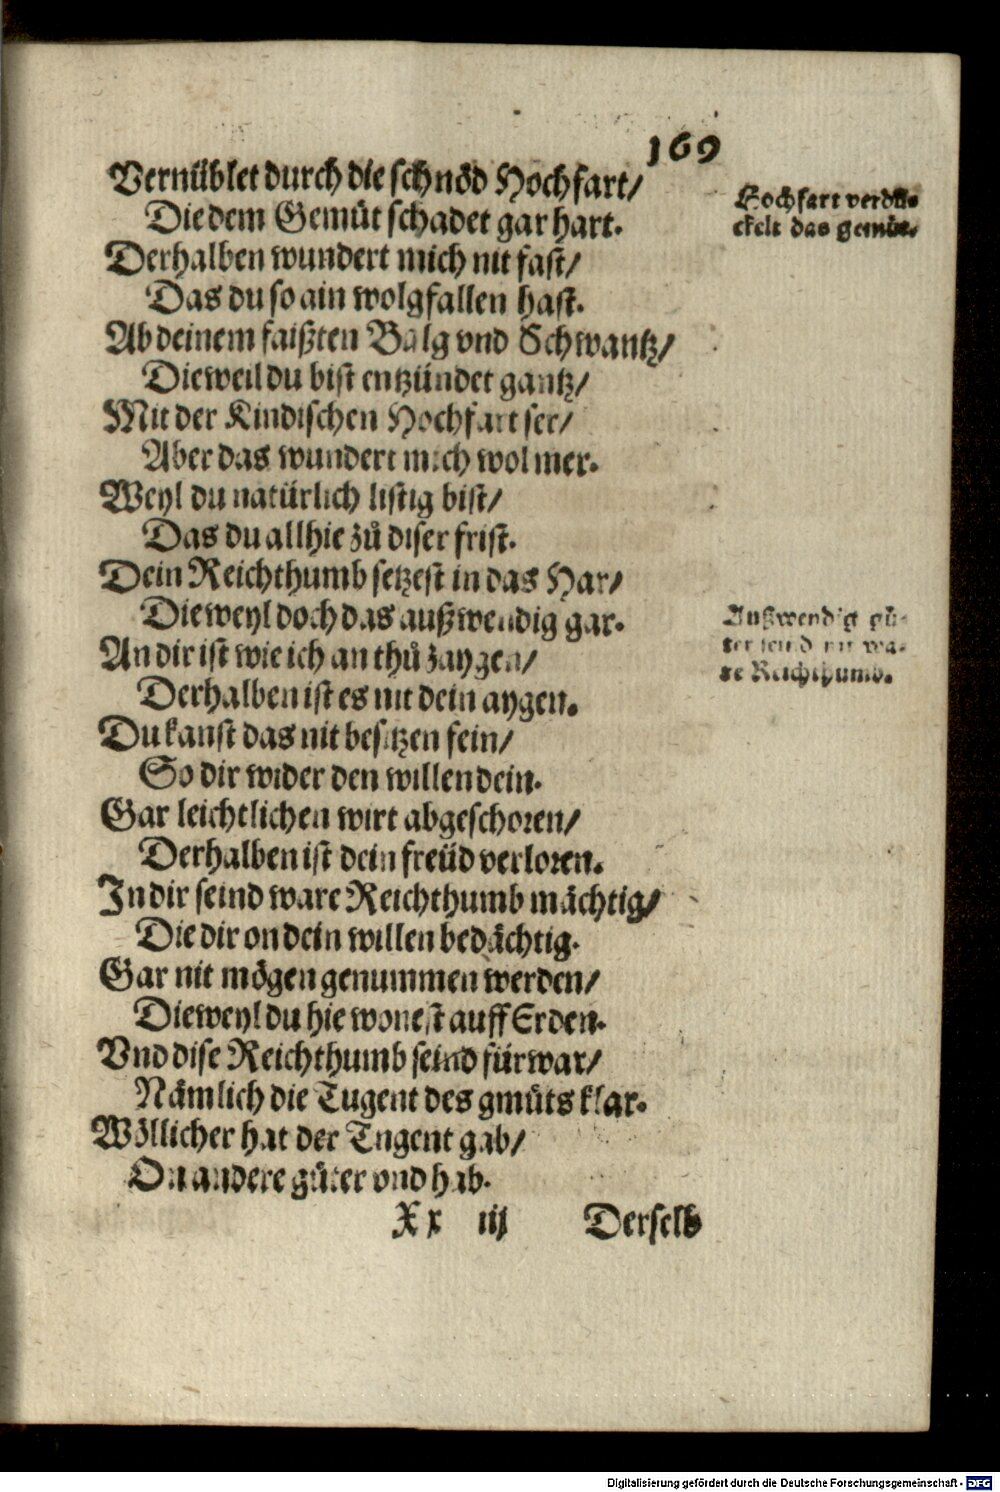 169
Vernüblet durch die schnöd Hochfart/
Die dem Gemüt schadet gar hart.
Derhalben wundert mich nit fast/
Das du so ain wolgfallen hast.
Ab deinem faißten Balg vnd Schwantz/
Dieweil du bist entzündet gantz/
Mit der Kindischen Hochfart ser/
Aber das wundert mich wol mer.
Weyl du natürlich listig bist/
Das du allhie zů diser frist.
Dein Reichthumb setzest in das Har/
Dieweyl doch das außwendig gar.
An dir ist wie ich an thů zaygen/
Derhalben ist es nit dein aygen.
Du kanst das nit besitzen fein/
So dir wider den willen dein.
Gar leichtlichen wirt abgeschoren/
Derhalben ist dein freüd verloren.
In dir seind ware Reichthumb mächtig/
Die dir on dein willen bedächtig.
Gar nit mögen genummen werden/
Dieweyl du hie wonest auff Erden.
Vnd dise Reichthumb seind fürwar/
Nämlich die Tugent des gmüts klar.
Wöllicher hat der Tugent gab/
On andere güter vnd hab.
Xx iij Derselb
Hochfart verdu-
ckelt das gemüt.
Außwendig gü-
ter seind nit wa-
re Reichthumb.
Digitalisierung gefördert durch die Deutsche Forschungsgemeinschaft - DFG